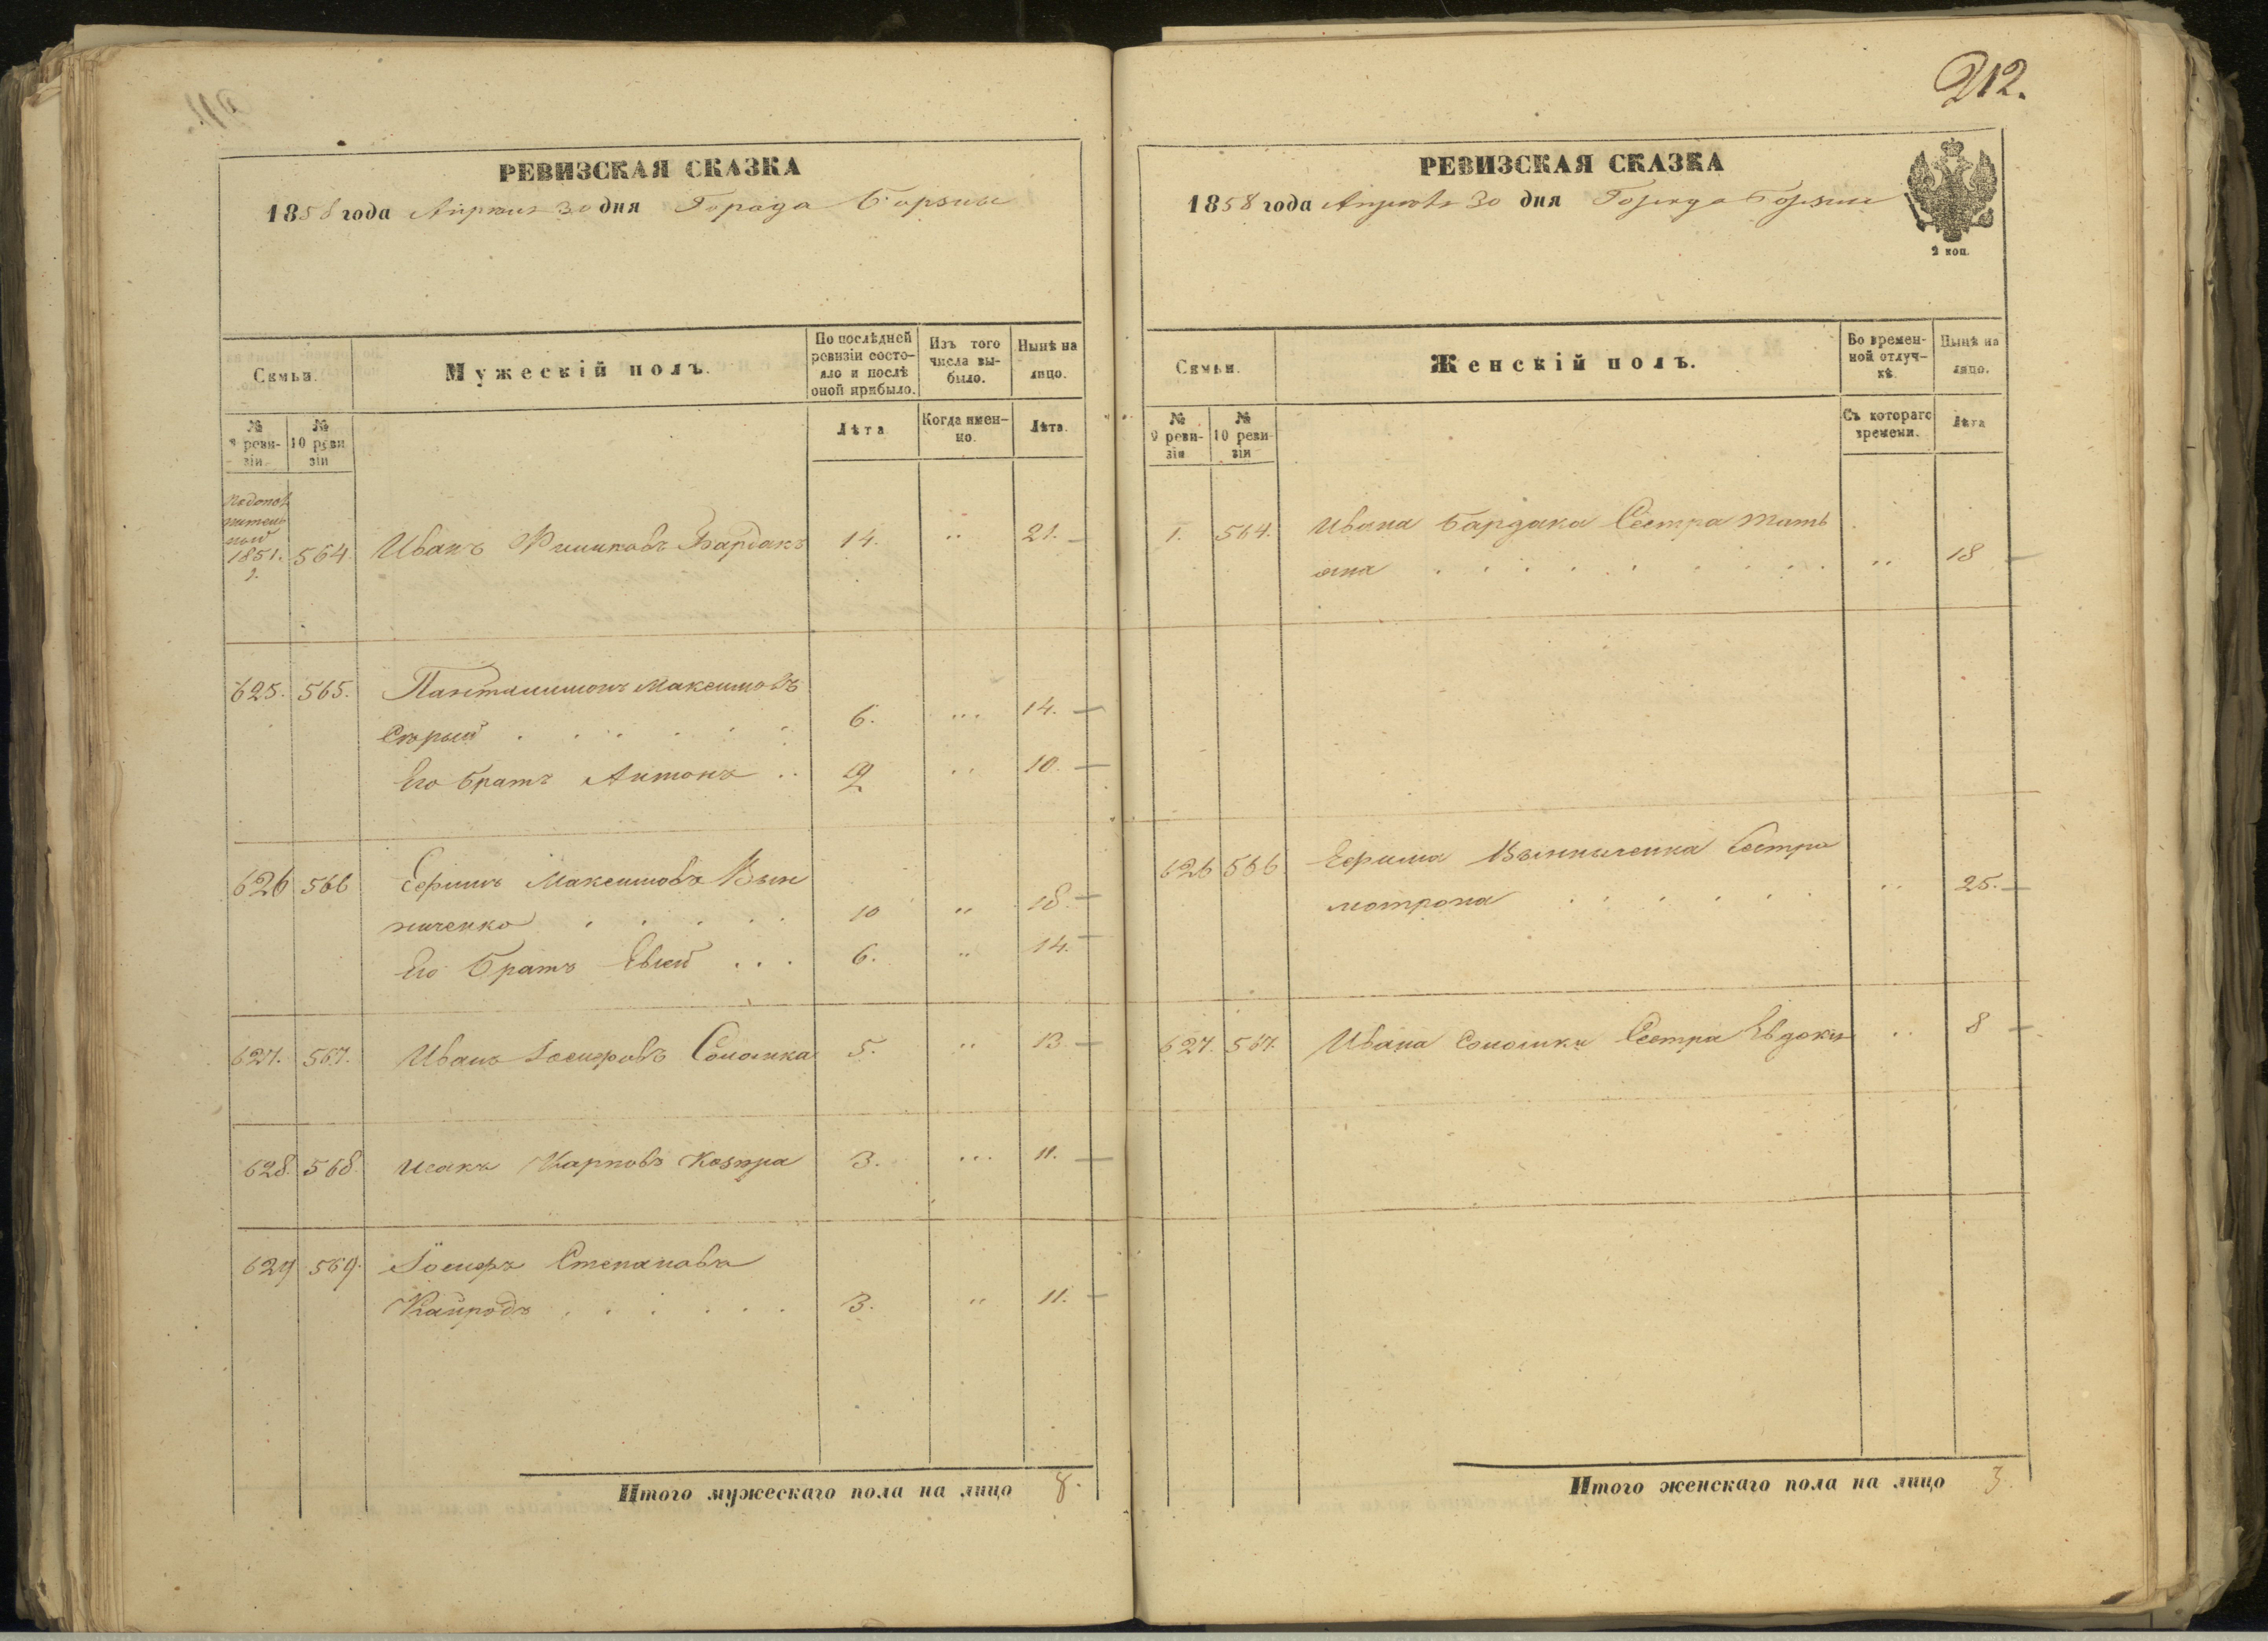 212.
РЕВИЗСКАЯ СКАЗКА
1858 года Апрѣля 30 дня Города Борзны
Семьи.
Мужескій полъ.
По послѣдней ревизіи состояло и послѣ оной прибыло.
Изъ того числа выбыло.
Нынѣ на лицо.
№ 9 ревизіи
№ 10 ревизіи
Лѣта
Когда именно.
Лѣта.
1851. 564. Иванъ Бардакъ 14. „ 21. —
625. 565. Пантилимонъ Максимовъ
Сѣрый . . . . . . 6. „ 14. —
Его братъ Антонъ .. 2 „ 10. —
626 566 Ефимъ Максимовъ Вын
ниченко . . . . . 10 „ 18. —
Его братъ Евсей . . . 6. „ 14. —
627. 567. Иванъ Іосифовъ 5. „ 13 —
628. 568. Исакъ Карповъ 3. „ 11. —
629 569. Іосифъ Степановъ
3. „ 11. —
Итого мужескаго пола на лицо 8.
РЕВИЗСКАЯ СКАЗКА
1858 года Апрѣля 30 дня Города Борзны
2 коп.
Семьи.
Женскій полъ.
Во временной отлучкѣ.
Нынѣ на лицо.
№ 9 ревизіи
№ 10 ревизіи
Съ котораго времени.
Лѣта
1. 564. Ивана Бардака Сестра Тать
яна . . . . . . . . . „ 18 —
626 566 Ефима Выниченка Сестра
Мотрона . . . . . „ 25. —
627. 567. Ивана Сестра Евдокія „ 8 —
Итого женскаго пола на лицо 3.